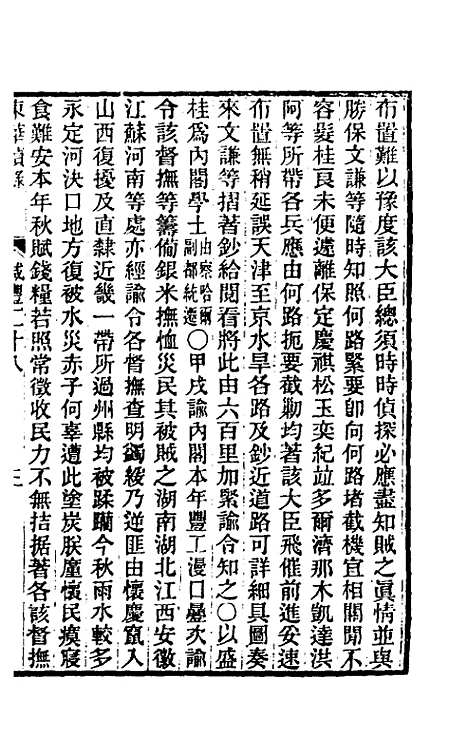 布置難以豫度該大臣總須時時偵探必應盡知賊之眞情並與
勝保文謙等隨時知照何路緊要卽向何路堵截機宜相關間不
容髮桂良未便遠離保定慶祺松玉奕紀竝多爾濟那木凱達洪
阿等所帶各兵應由何路扼要截勦均著該大臣飛催前進妥速
布置無稍延誤天津至京水旱各路及鈔近道路可詳細具圖奏
來文謙等摺著鈔給閱看將此由六百里加緊諭令知之〇以盛
桂爲內閣學士由察哈爾副都統遷〇甲戌諭內閣本年豐工漫口曡次諭
令該督撫等籌備銀米撫恤災民其被賊之湖南湖北江西安徽
江蘇河南等處亦經諭令各督撫查明蠲緩乃逆匪由懷慶竄入
山西復擾及直隸近畿一帶所過州縣均被蹂躪今秋雨水較多
永定河決口地方復被水災赤子何辜遭此塗炭朕廑懷民瘼寢
食難安本年秋賦錢糧若照常徵收民力不無拮据著各該督撫
東華續錄 咸豐二十八 三